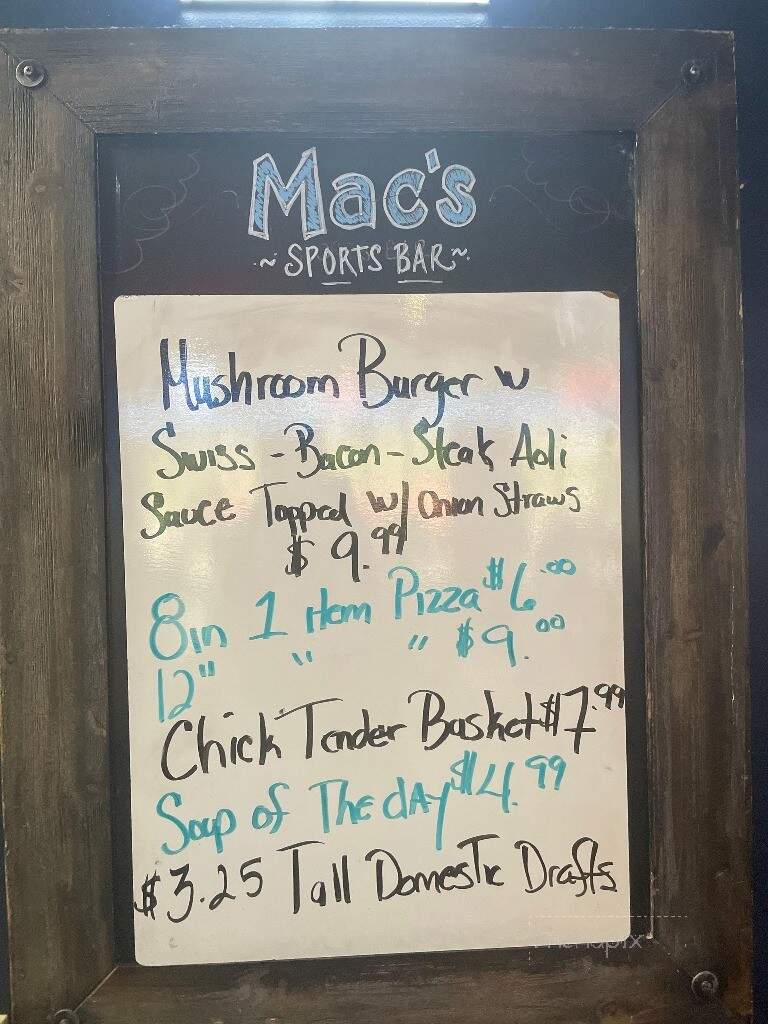 Mac's
~ SPORTS BAR ~
Mushroom Burger w
Swiss - Bacon - Steak Aoli
Sauce Topped w/ Onion Straws
$9.99
8in 1 Item Pizza $6.00
12" " " $9.00
Chick Tender Basket $7.99
Soup of The dAy $4.99
$3.25 Tall Domestic Drafts
menupix